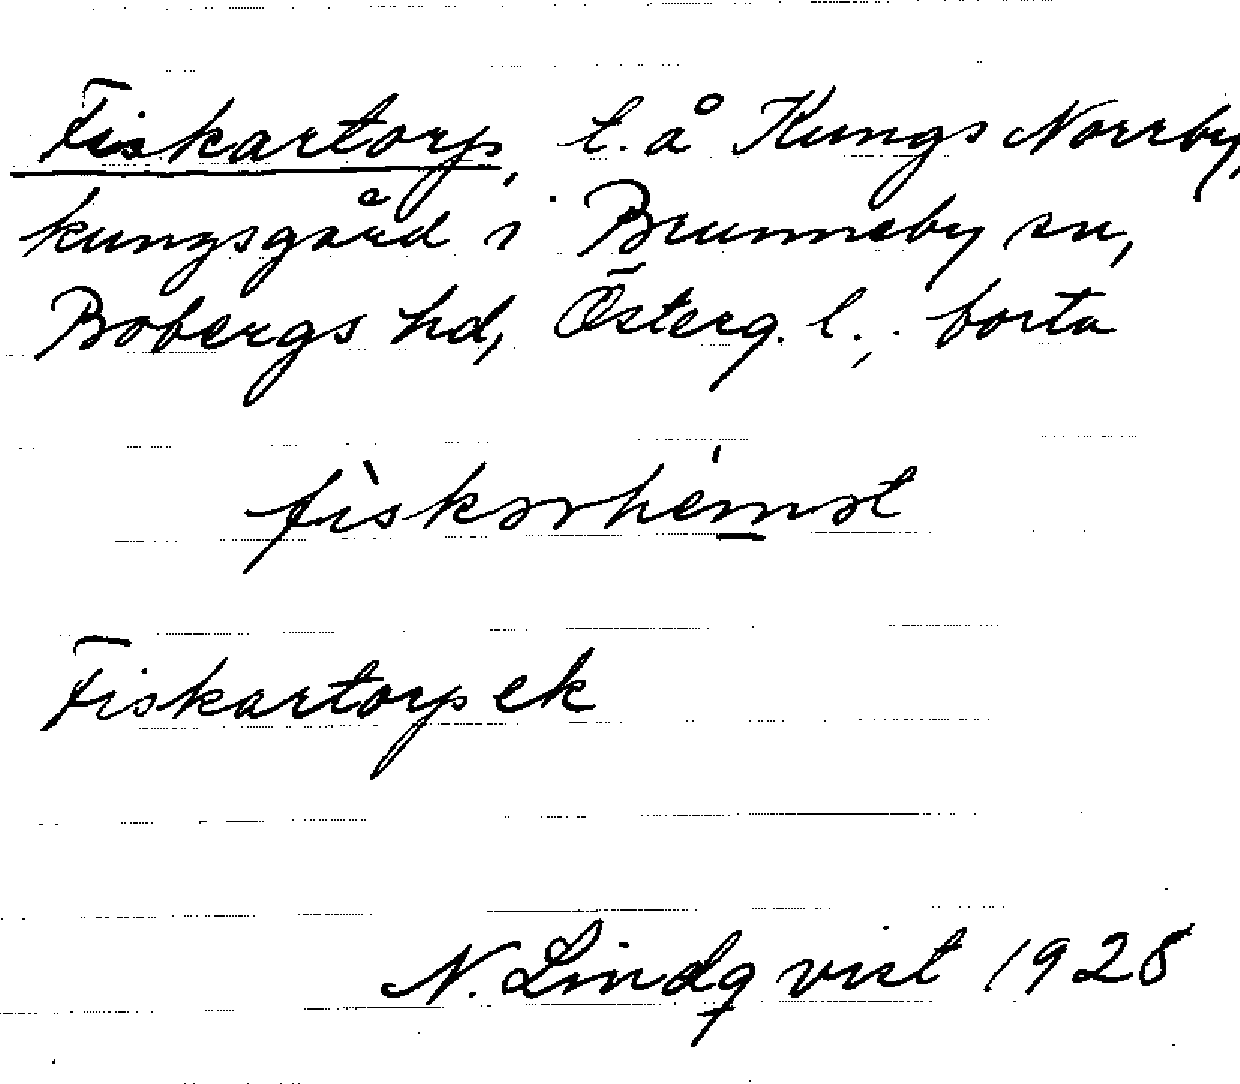 Fiskartorp, t. å Kungs Norrby,
kungsgård i Brunneby sn,
Bobergs hd, Österg. l., borta
fìskarhémat
Fiskartorp ek
N. Lindqvist 1928